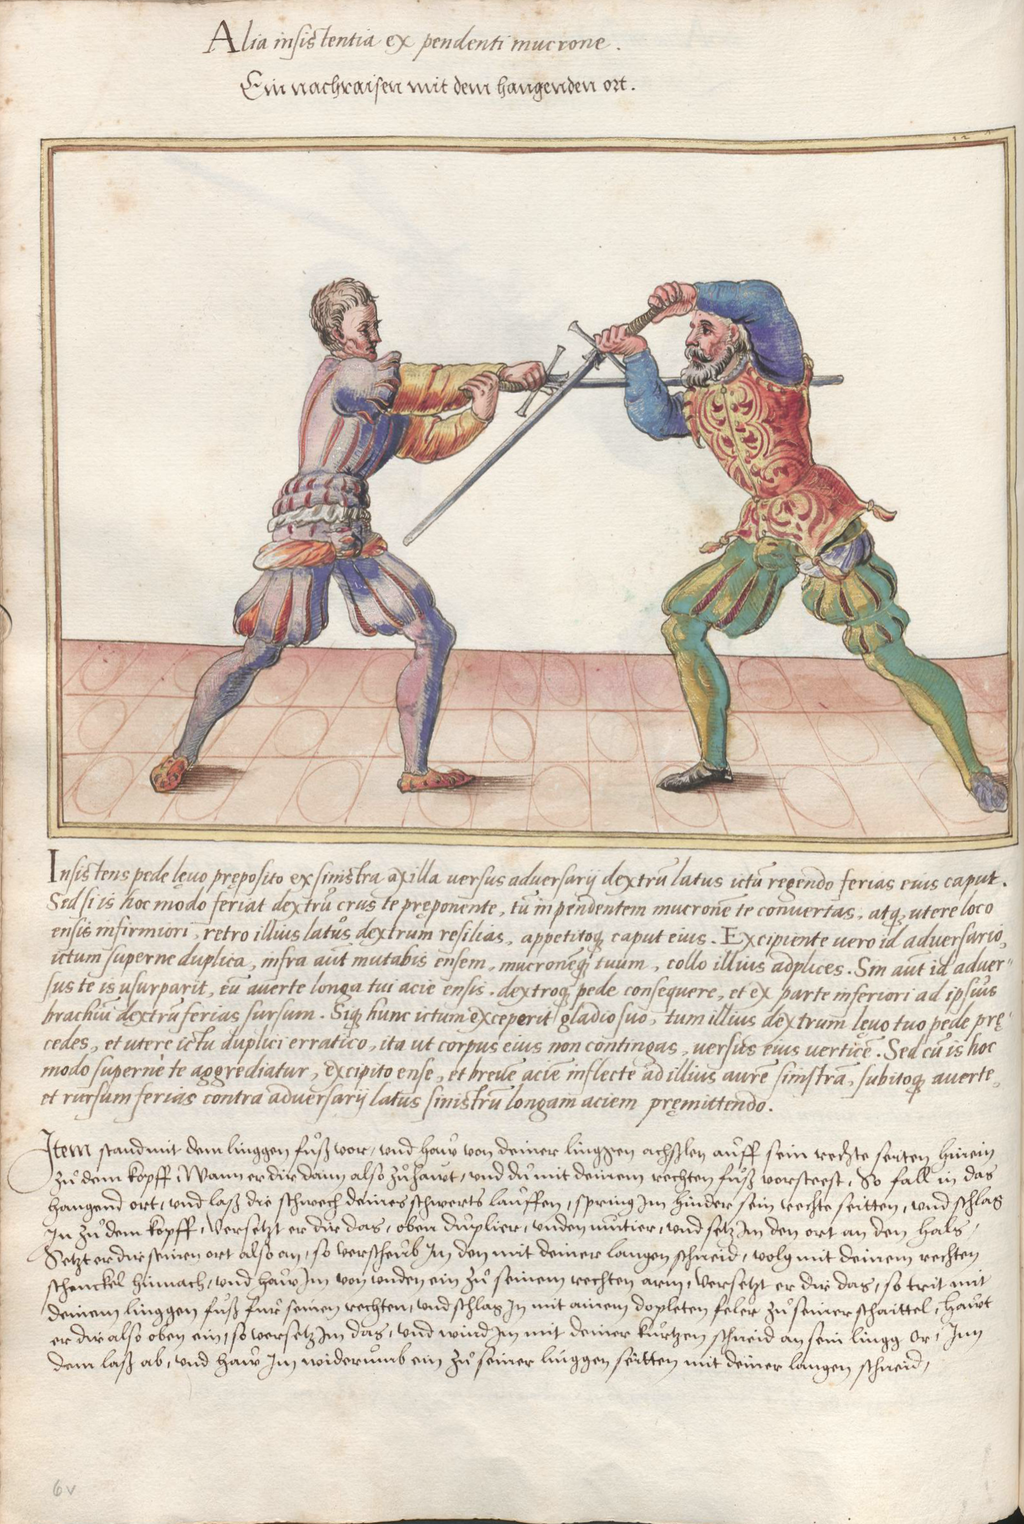 Alia insistentia ex pendenti mucrone.
Ein nachraisen mit dem hangenden ort.
Insistens pede lęuo pręposito ex sinistra axilla uersus aduersarij dextrũ latus ictũ regendo ferias eius caput.
Sed si is hoc modo feriat dextrũ crus te pręponente, tu in pendentem mucronẽ te conuertas, atq̃ utere loco
ensis infirmiori, retro illius latus dextrum resilias, appetitoq̃ caput eius. Excipiente uero id aduersario,
ictum superne duplica, infra aut mutabis ensem, mucronẽq̃ tuum, collo illius adplices. Sin aut id aduer-
sus te is usurparit, eũ auerte longa tui acie ensis. dextroq̃ pede consequere, et ex parte inferiori ad ipsius
brachiũ dextrũ ferias sursum. Siq̃ hunc ictum exceperit gladio suo, tum illius dextrum lęuo tuo pede prę-
cedes, et utere ictu duplici erratico, ita ut corpus eius non contingas, uersus eius uerticẽ. Sed cũ is hoc
modo superne te aggrediatur, excipito ense, et breuẽ aciẽ inflecte ad illius aurẽ sinistrã, subitoq̃ auerte,
et rursum ferias contra aduersarij latus sinistrũ longam aciem pręmittendo.
Item stand mit dem linggen fuͦß vor, vnd haw von deiner linggen achslen auff sein rechte seiten hinein
zuͦ dem kopff, Wann er dir dann also zuͦhawt, vnd du mit deinem rechten fuͦß vorsteest, So fall in das
hangend ort, vnd laß die schwech deines schwerts lauffen, spring Im hinder sein rechte seitten, vnd schlag
In zuͦ dem kopff, Versetzt er dir das, oben duplier, vnden mutier, vnd setz Im den ort an den hals,
Setzt er dir seinen ort also an, so verscheub In den mit deiner langen schneid, volg mit deinem rechten
schenckel hinnach, vnd haw Im von vnden ein zuͦ seinem rechten arm, Versetzt er dir das, so trit mit
deinem linggen fuͦß fur seinen rechten, vnd schlag In mit ainem dopleten feler zuͦ seiner schaittel, Hawt
er dir also oben ein, so versetz Im das, vnd wind Im mit deiner kurtzen schneid an sein lingg or, Inn
dem laß ab, vnd haw Im widerumb ein zuͦ seiner linggen seitten mit deiner langen schneid,
6v